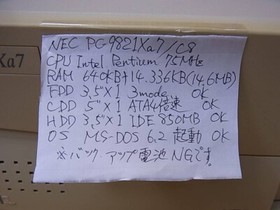 Xa7
NEC PC-9821Xa7/C8
CPU Intel Pentium 75MHz
RAM 640KB+14.336KB(14.6MB)
FDD 3.5"×1 3mode OK
CDD 5"×1 ATA4倍速 OK
HDD 3.5"×1 IDE 850MB OK
OS MS-DOS 6.2 起動 OK
※バックアップ電池NGです。